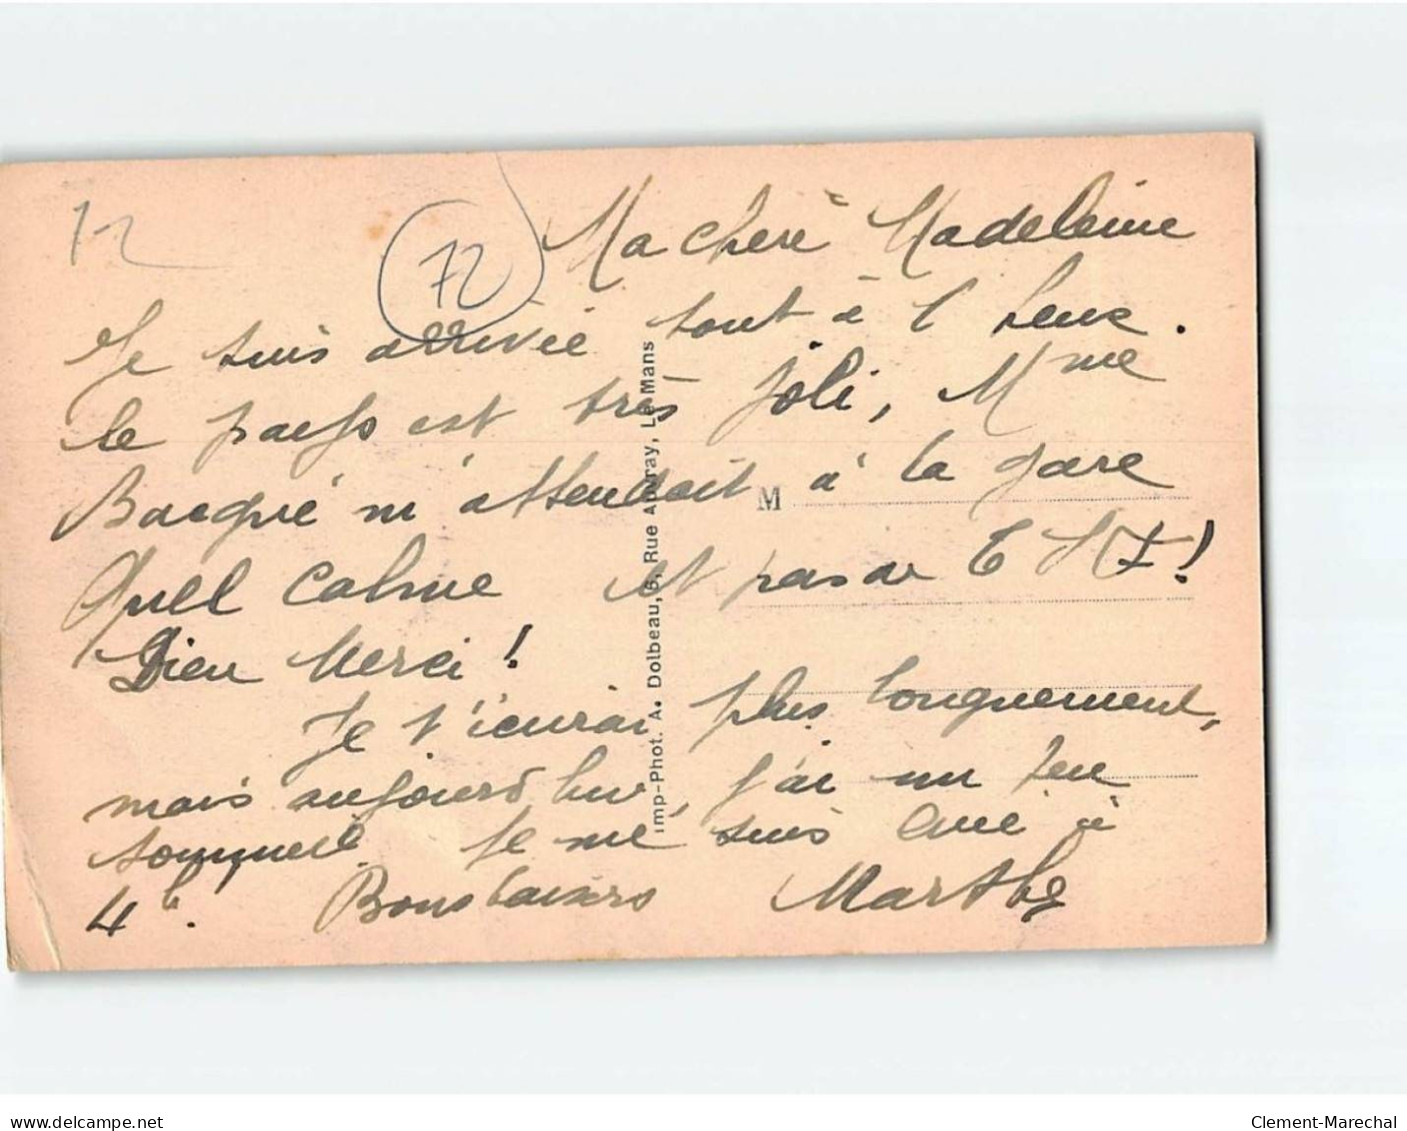 72
72
Ma chère Madeleine
Je suis arrivée tout à l'heure.
le pays est très joli, Mme
Bacqué m'attendait à la gare
Quel calme et pas de T S F!
Dieu Merci!
Je t'écrirai plus longuement,
mais aujourd'hui, j'ai un peu
sommeil. Je me suis levée à
4h. Bons baisers Marthe
M
Imp-Phot. A. Dolbeau, 6, Rue Auvray, Le Mans
delcampe.net
Clement-Marechal